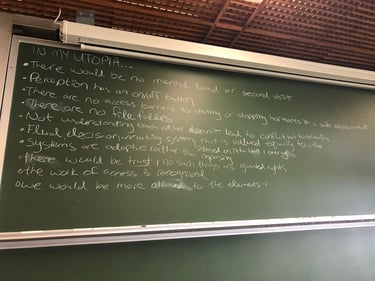 IN MY UTOPIA...
• There would be no mental load or second shift
• Perception has an on/off button
• There are no access barriers to starting or stopping hormones in a safe environment
• There are no file folders
• Not understanding each other doesn't lead to conflict but to
• Fluid decision-making system that is valued equally to
• Systems are adaptive rather than imposing based on intuition + energies
• there would be trust | no such things as granted rights
• the work of access is recognized
• we would be more attuned to the elements